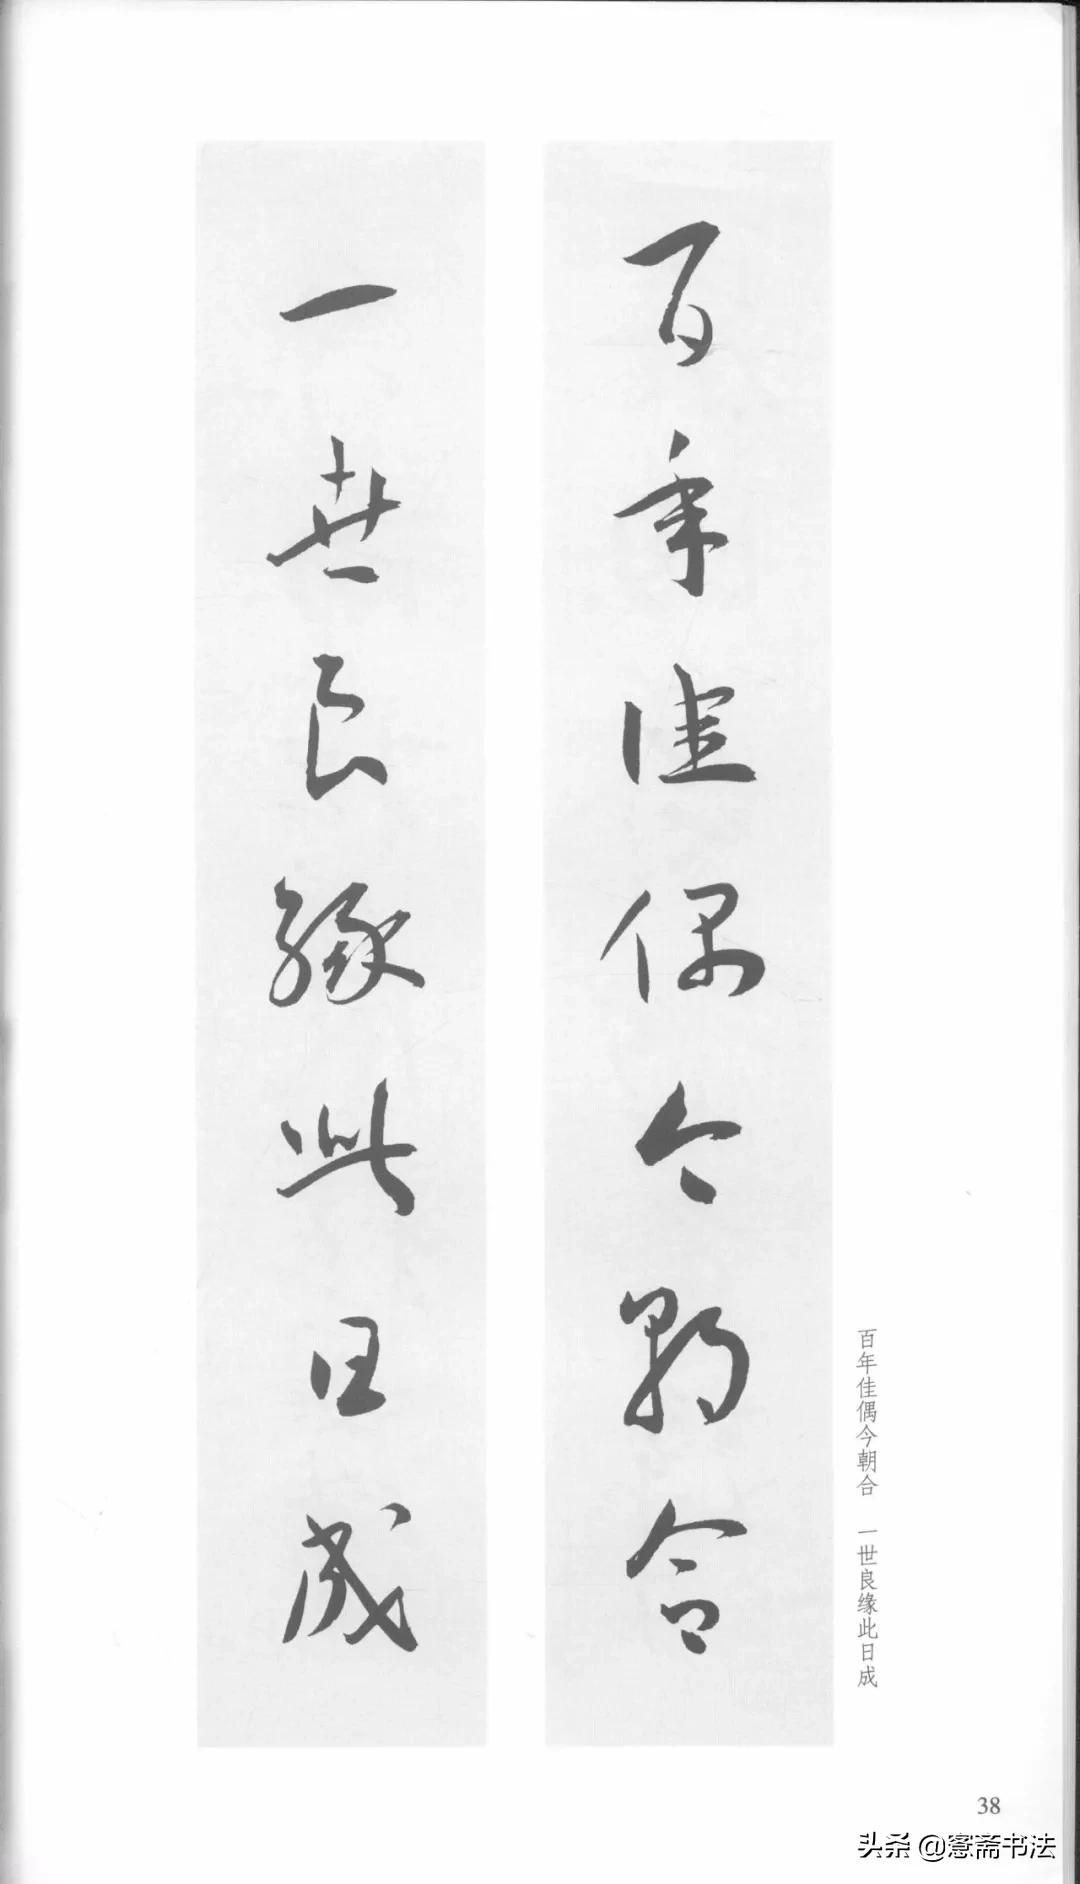 百年佳偶今朝合
一世良緣此日成
百年佳偶今朝合 一世良缘此日成
38
头条@愙斋书法